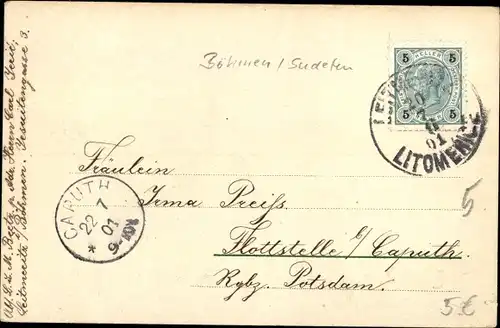 Böhmen / Sudeten
5 HELLER 5
5 5
LEITM
20
7
01
LITOMĚŘICE
Fräulein
Irma Preiss
Flottstelle b/Caputh.
Rgbz. Potsdam.
CAPUTH
22 7
01
* 9-10V
5
5€
Abs. L. & M. p. Adr. Herrn Carl
Leitmeritz i/Böhmen. Jesuitengasse 3.